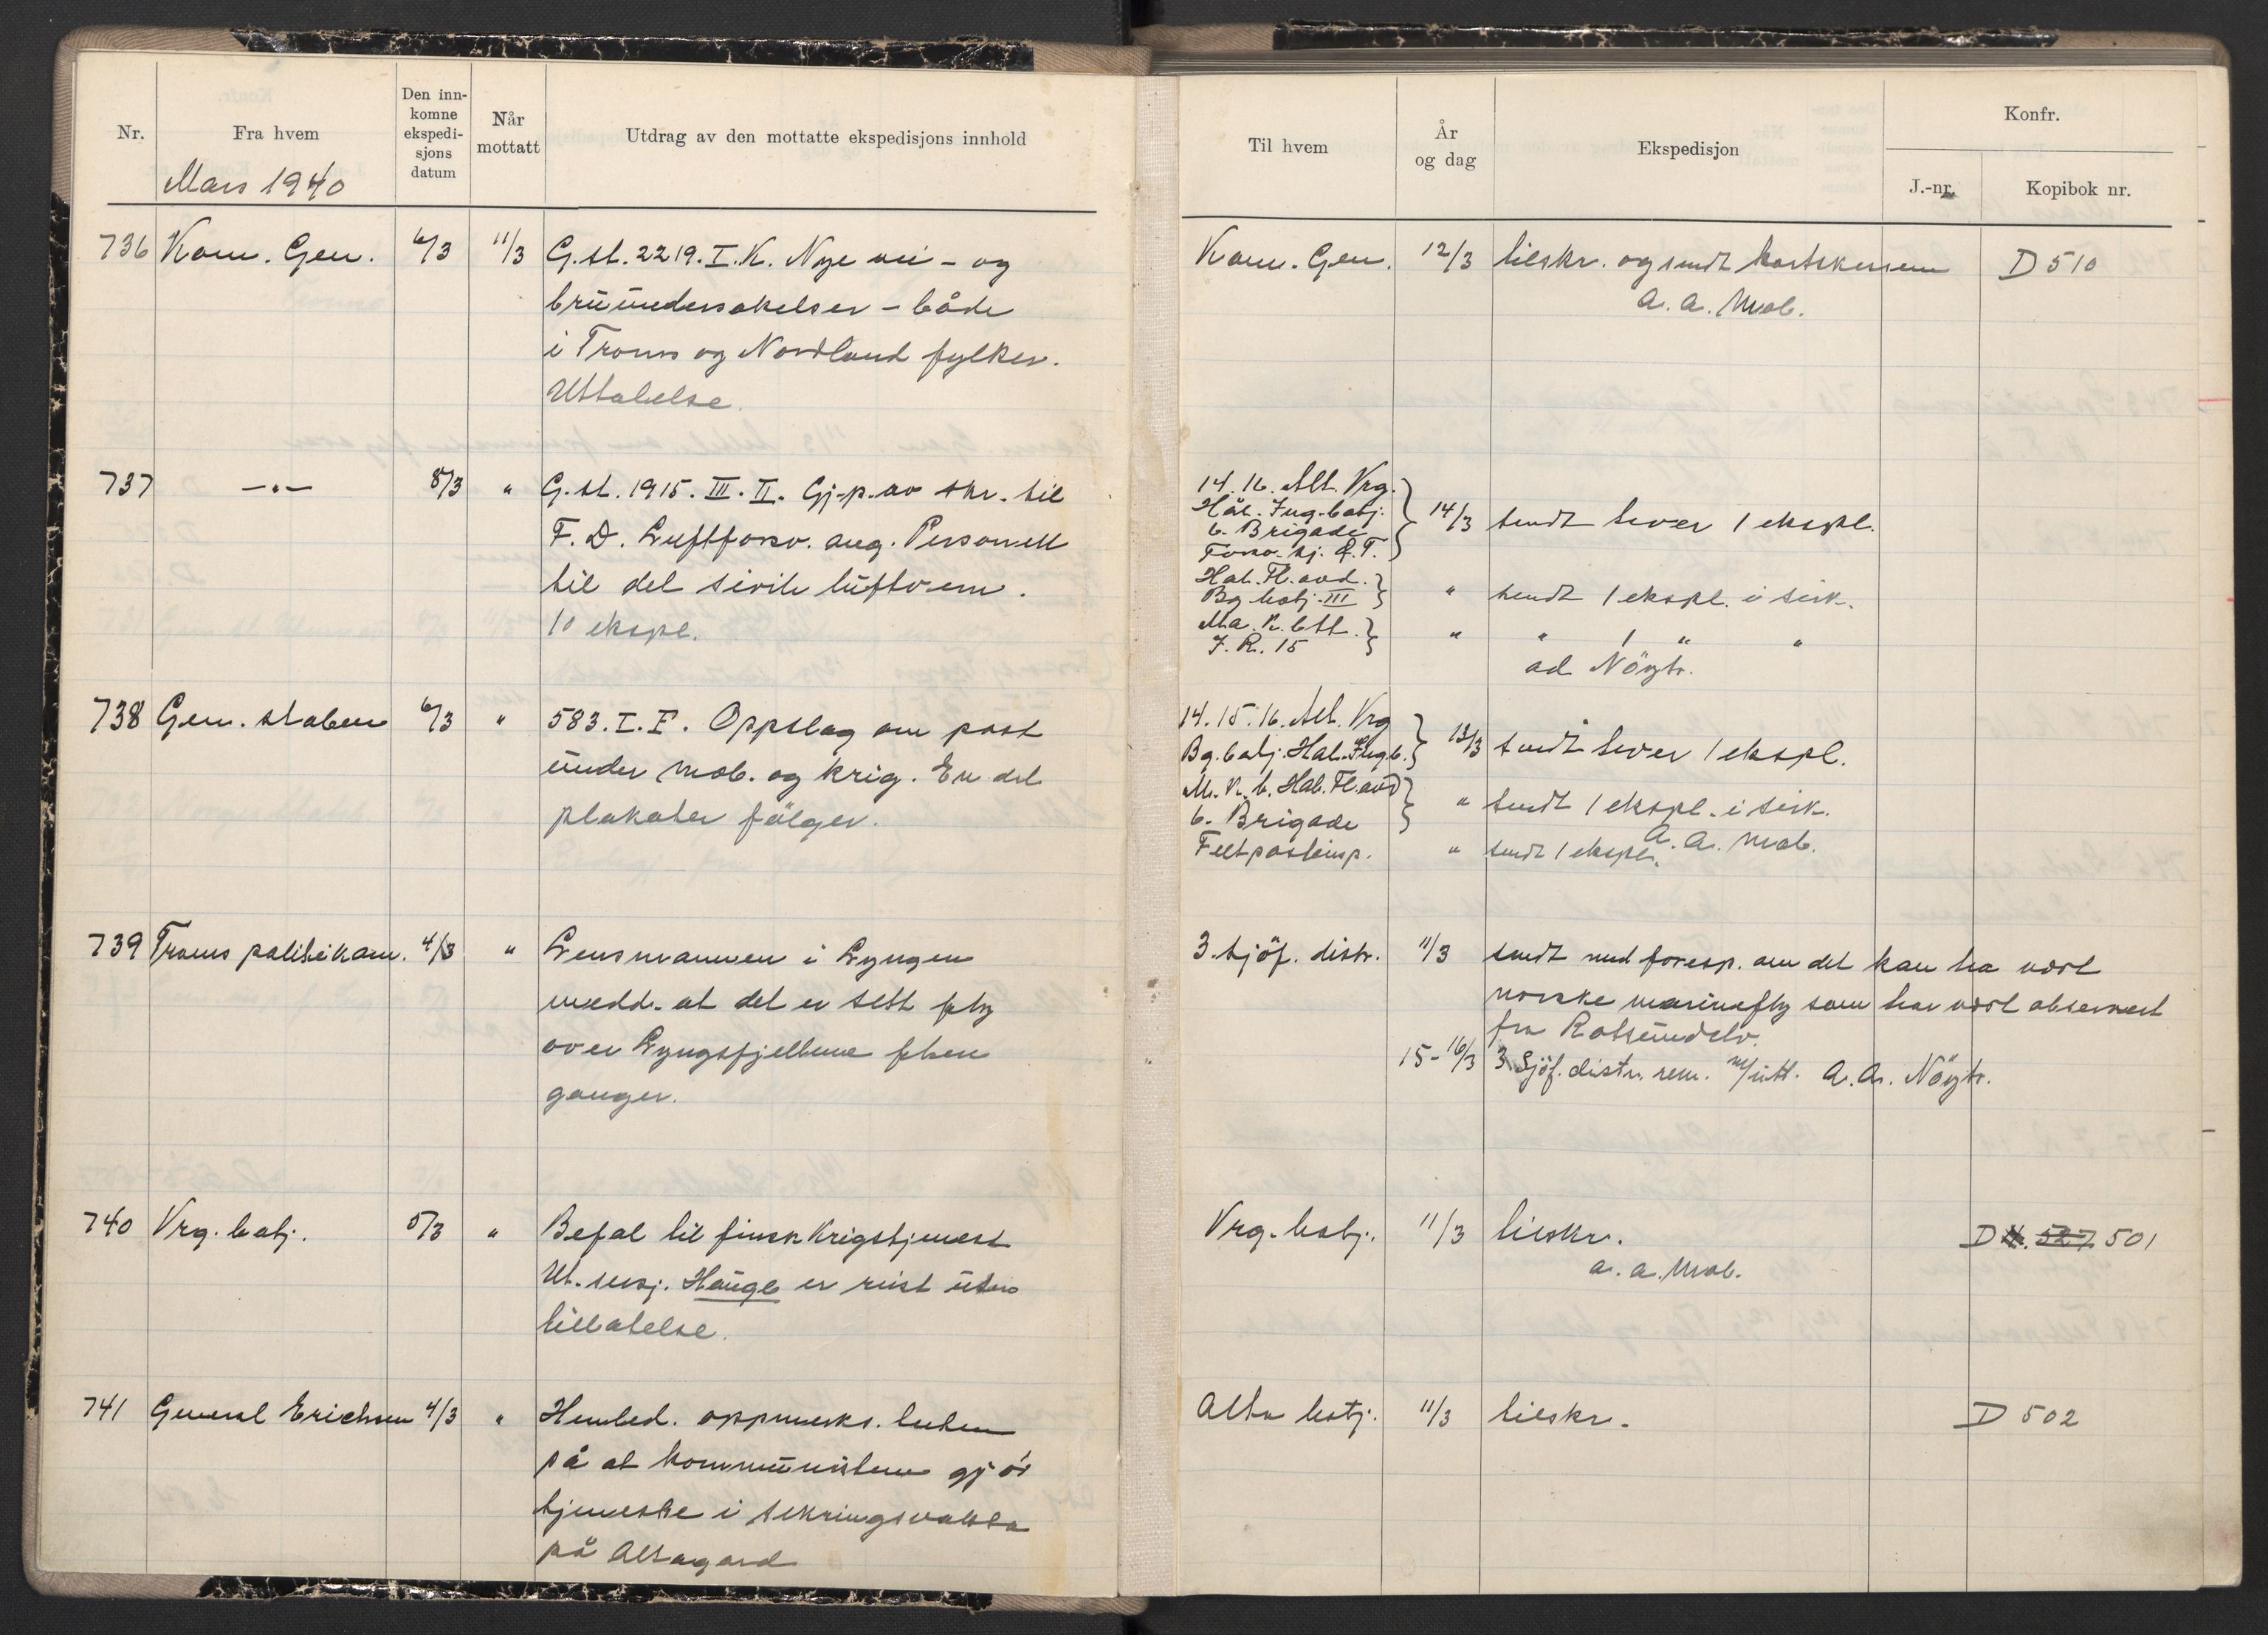 Nr.
Fra hvem
Den inn-
komne
ekspedi-
sjons
datum
Når
mottatt
Utdrag av den mottatte ekspedisjons innhold
Mars 1940
736 Kom. Gen. 6/3 11/3 G.st. 2219. I. K. Nye vei - og
bruundersøkelser - både
i Troms og Nordland fylker.
Uttalelse.
737 —"— 8/3 " G.st. 1915. III. II. Gj-p. av skr. til
F. D. Luftforsv. ang. Personell
til det sivile luftvern.
10 ekspl.
738 Gen. staben 6/3 " 583. I. F. Oppslag om post
under mob. og krig. En del
plakater følger.
739 Troms politikam. 4/3 " Lensmannen i Lyngen
medd. at det er sett fly
over Lyngsfjellene flere
ganger.
740 Vrg. batj. 5/3 " Befal til finsk Krigstjenest
Ut. sersj. Hauge er reist uten
tillatelse.
741 General Erichsen 4/3 " Henled. oppmerks. heten
på at kommunistene gjør
tjeneste i sikringsvakta
på Altagard
Til hvem
År
og dag
Ekspedisjon
Konfr.
J.-nr.
Kopibok nr.
Kom. Gen. 12/3 tilskr. og sendt kartskissene D 510
A. A. Mob.
14. 16. Alt. Vrg.
Hål. Ing. batj.
6. Brigade 14/3 sendt hver 1 ekspl.
Forsv. kj. Ø.F.
Hål. Fl. avd.
Bg. batj. III " sendt 1 ekspl. i sirk.
Ma. K. btt.
I. R. 15 " " 1 " "
ad Nöytr.
14. 15. 16. Alt. Vrg
Bg. batj. Hål. Ing. b. 13/3 sendt hver 1 ekspl.
M. K. b. Hål. Fl. avd
6. Brigade " sendt 1 ekspl. i sirk.
Feltpostinsp. " sendt 1 ekspl. A. A. Mob.
3. sjøf. distr. 11/3 sendt med foresp. om det kan ha vært
norske marinefly som har vært observert
fra Rotsundelv.
15-16/3 3 Sjöf. distr. rem. m/utt. A. A. Nöytr.
Vrg. batj. 11/3 tilskr. D N. 527 501
a. a. Mob.
Alta batj. 11/3 tilskr. D 502